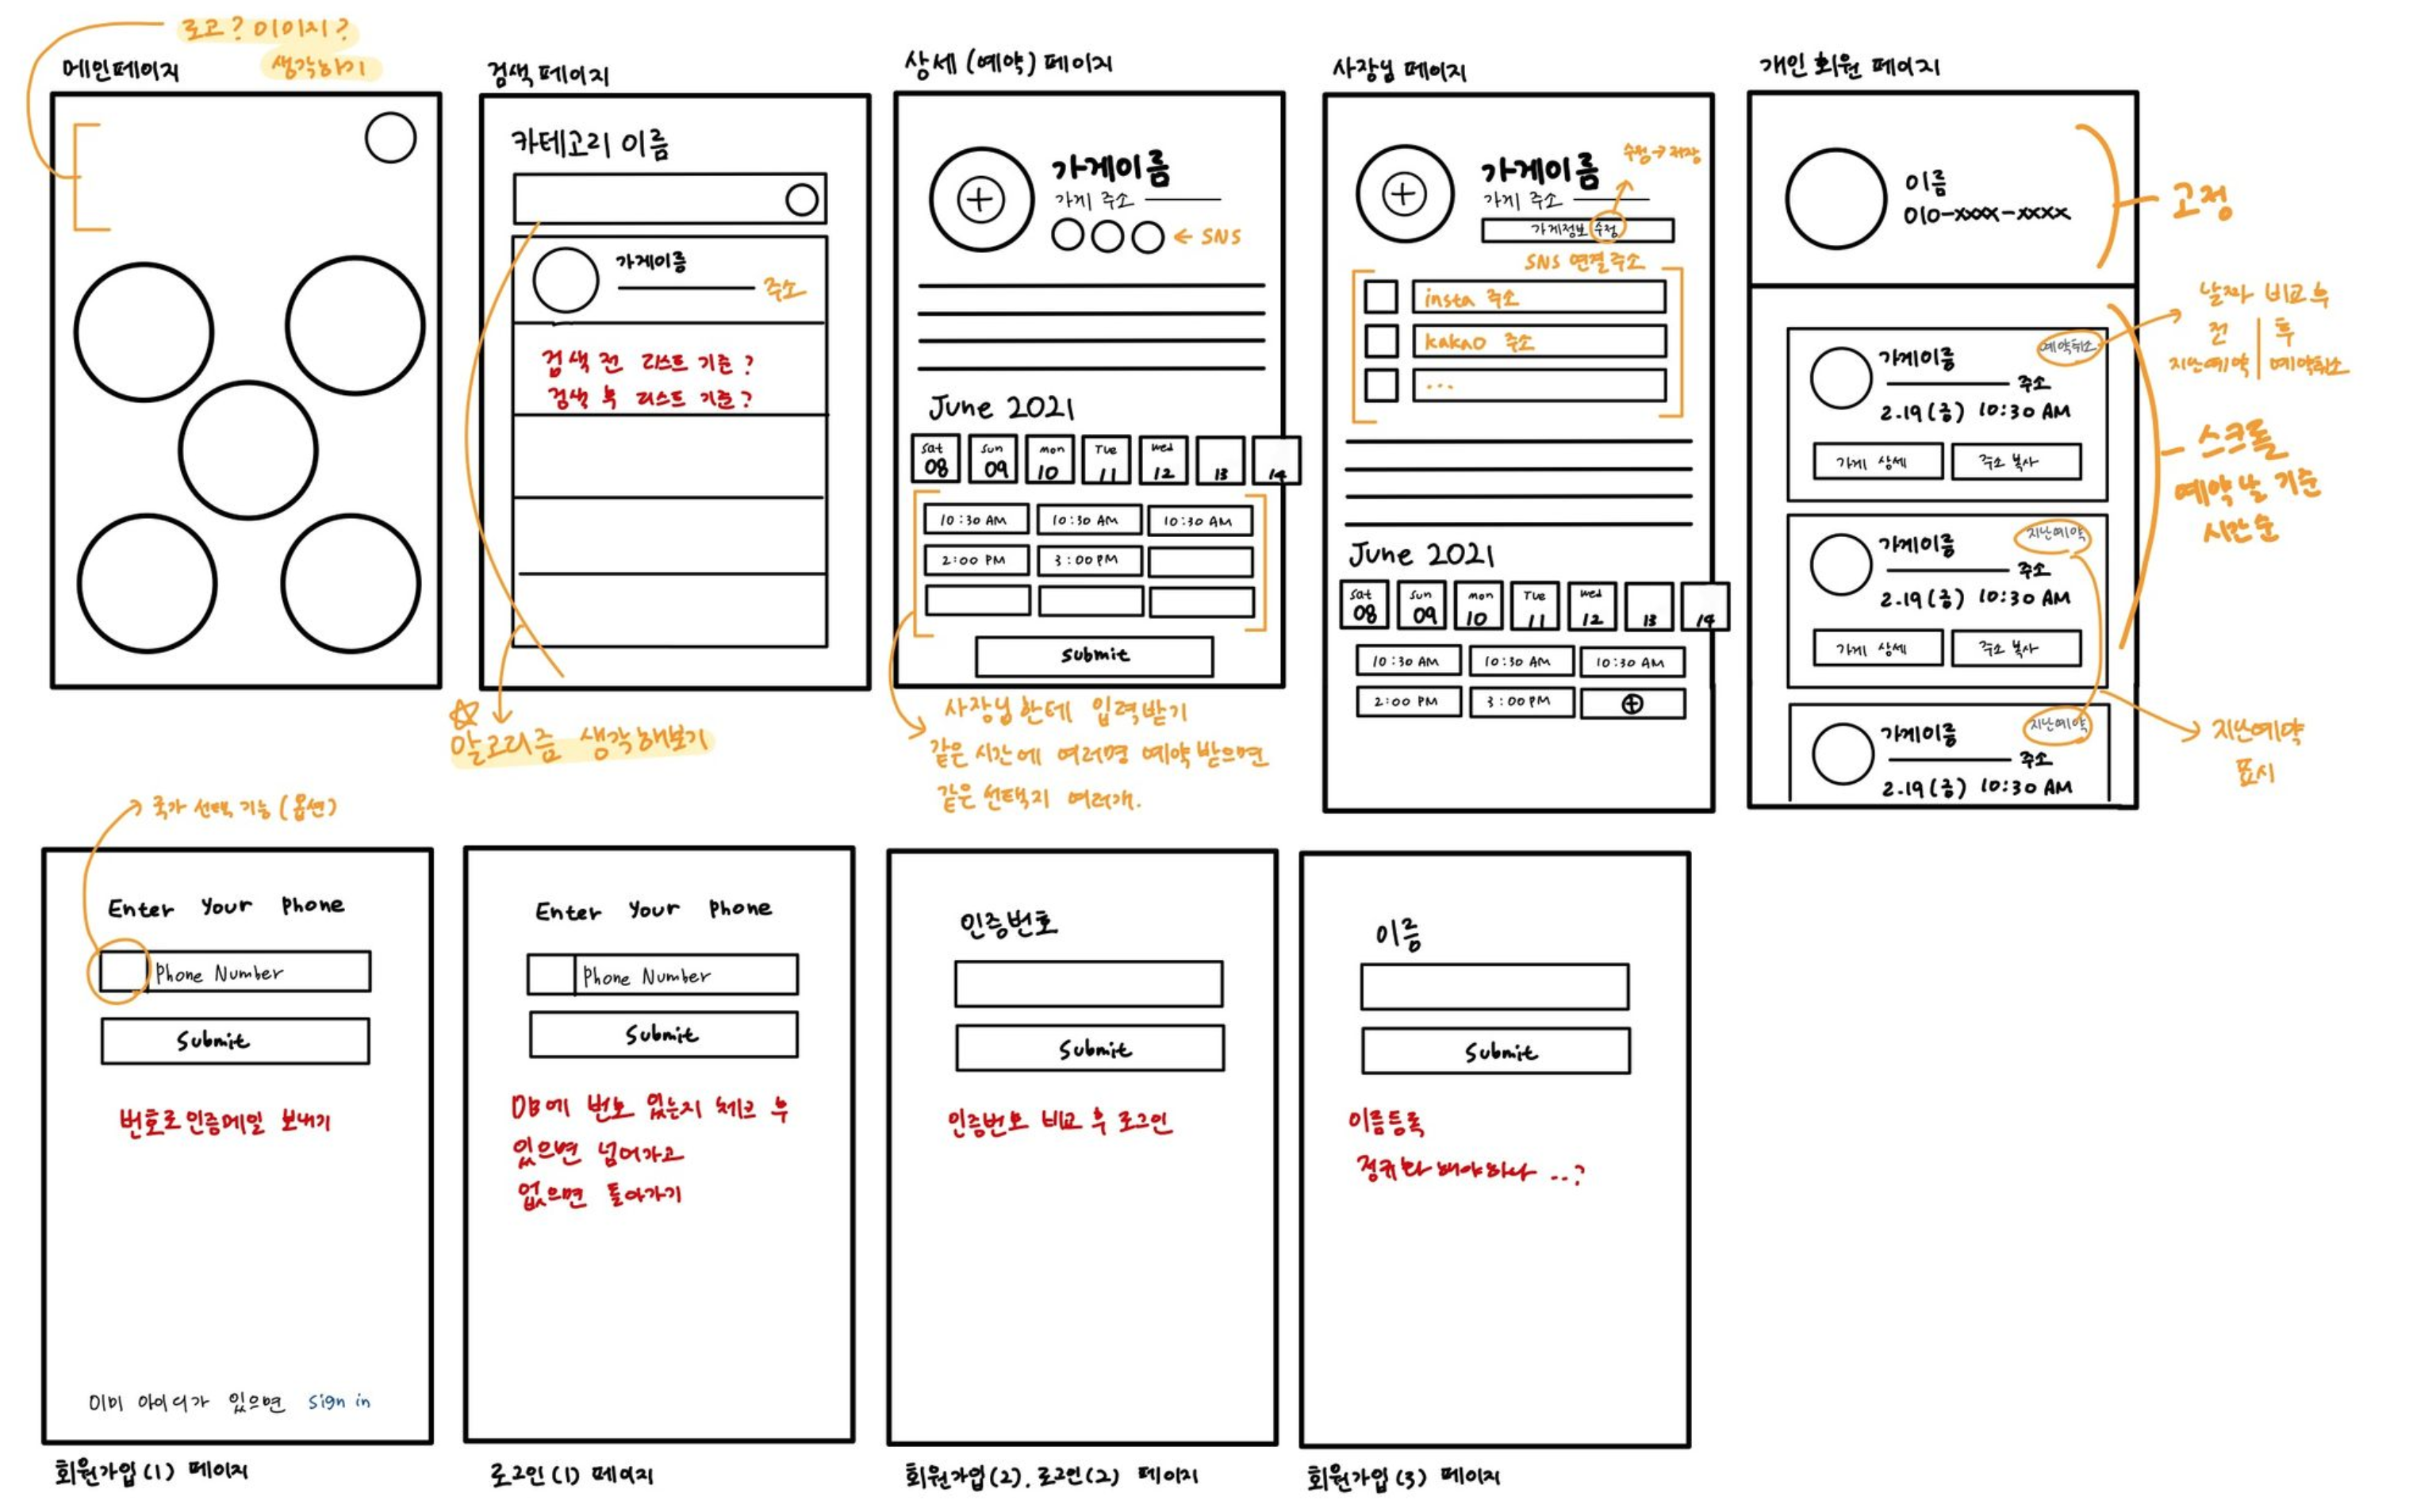 로고? 이미지?
생각하기
메인페이지
검색 페이지
카테고리 이름
가게이름
주소
검색 전 리스트 기준?
검색 후 리스트 기준?
알고리즘 생각해보기
상세 (예약) 페이지
가게이름
가게 주소
← SNS
June 2021
Sat
08
Sun
09
mon
10
Tue
11
wed
12
13
14
10:30 AM
10:30 AM
10:30 AM
2:00 PM
3:00 PM
Submit
사장님한테 입력받기
같은 시간에 여러명 예약 받으면
같은 선택지 여러개.
사장님 페이지
수정→저장
가게이름
가게 주소
가게정보 수정
SNS 연결주소
insta 주소
kakao 주소
...
June 2021
Sat
08
Sun
09
mon
10
Tue
11
wed
12
13
14
10:30 AM
10:30 AM
10:30 AM
2:00 PM
3:00 PM
개인 회원 페이지
이름
010-xxxx-xxxx
고정
날짜 비교후
전 | 후
지난예약 | 예약취소
가게이름
예약취소
주소
2.19(금) 10:30 AM
가게 상세
주소 복사
스크롤
예약날 기준
시간순
가게이름
지난예약
주소
2.19(금) 10:30 AM
가게 상세
주소 복사
가게이름
지난예약
주소
2.19(금) 10:30 AM
지난예약
표시
국가 선택 기능 (옵션)
Enter Your Phone
Phone Number
Submit
번호로 인증메일 보내기
이미 아이디가 있으면 sign in
회원가입(1) 페이지
Enter Your Phone
Phone Number
Submit
DB에 번호 있는지 체크 후
있으면 넘어가고
없으면 돌아가기
로그인(1) 페이지
인증번호
Submit
인증번호 비교 후 로그인
회원가입(2). 로그인(2) 페이지
이름
Submit
이름등록
정규화 해야하나 ..?
회원가입(3) 페이지